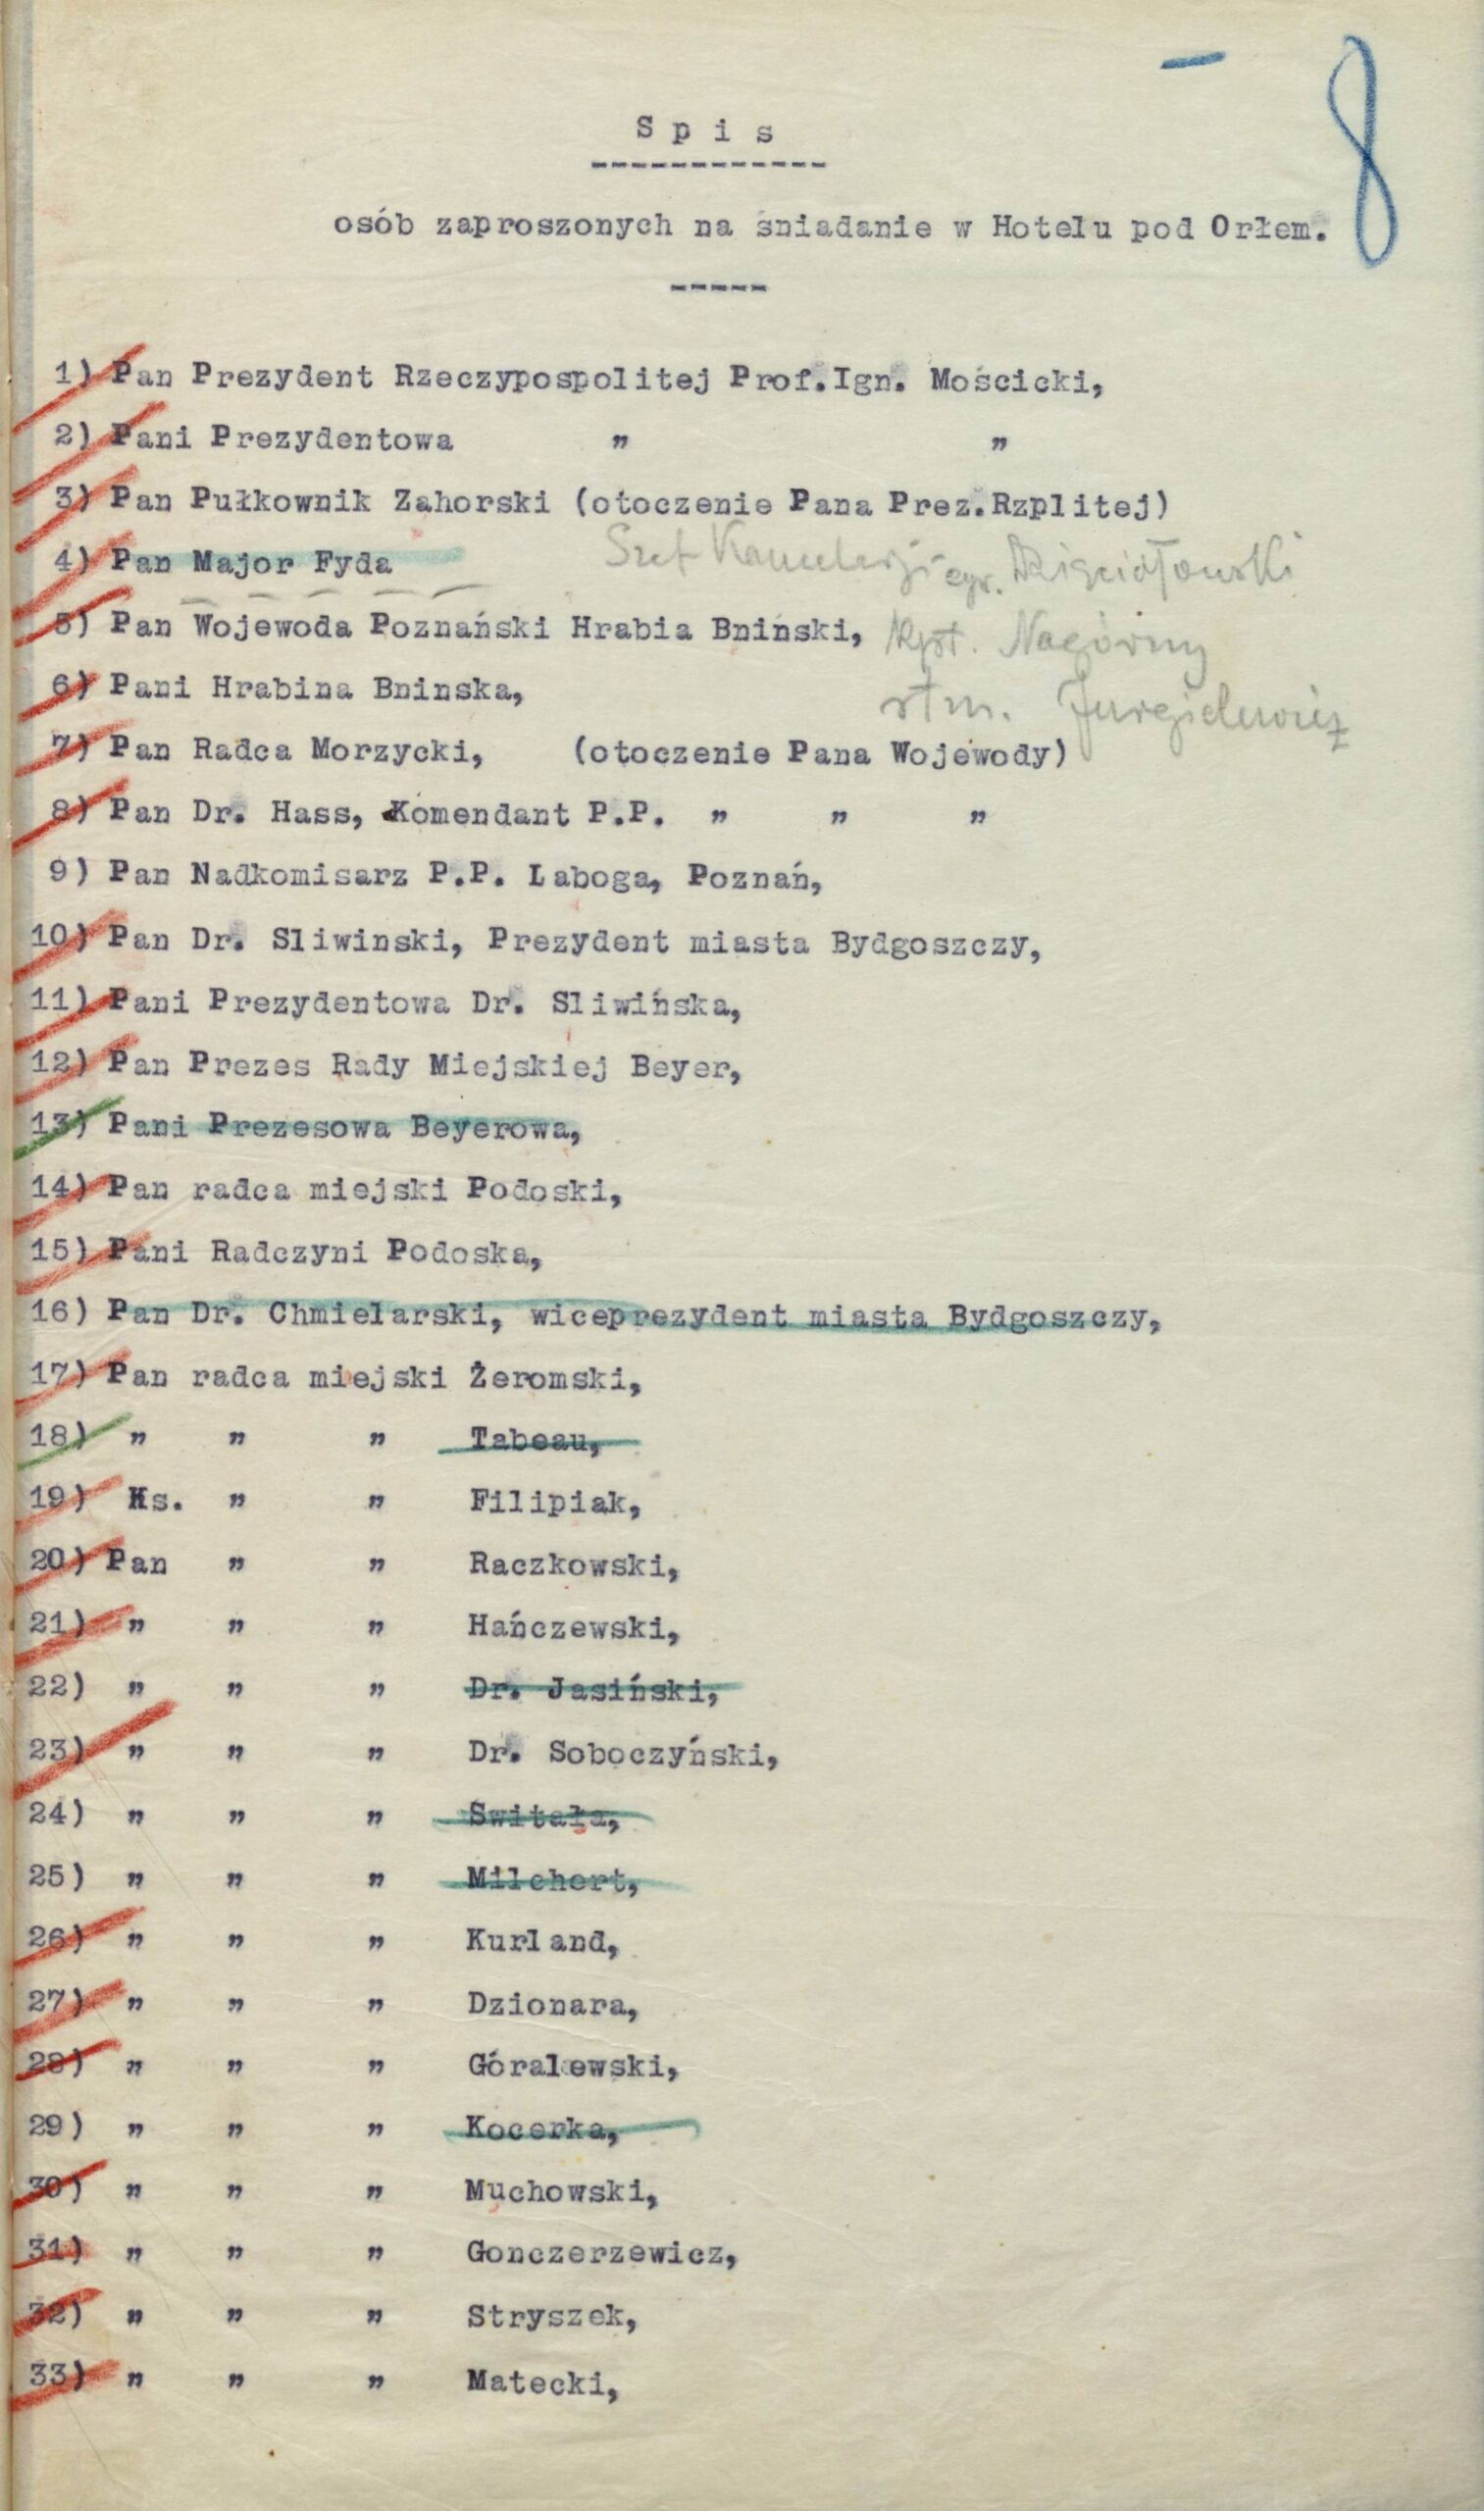 8
S p i s
osób zaproszonych na śniadanie w Hotelu pod Orłem.
1) Pan Prezydent Rzeczypospolitej Prof.Ign. Mościcki,
2) Pani Prezydentowa " "
3) Pan Pułkownik Zahorski (otoczenie Pana Prez.Rzplitej)
4) Pan Major Fyda Szef Kancelarji
5) Pan Wojewoda Poznański Hrabia Bniński, Kpt. Nagórny
6) Pani Hrabina Bninska, rtm. Jurgielewicz
7) Pan Radca Morzycki, (otoczenie Pana Wojewody)
8) Pan Dr. Hass, Komendant P.P. " " "
9) Pan Nadkomisarz P.P. Laboga, Poznań,
10) Pan Dr. Sliwinski, Prezydent miasta Bydgoszczy,
11) Pani Prezydentowa Dr. Sliwińska,
12) Pan Prezes Rady Miejskiej Beyer,
13) Pani Prezesowa Beyerowa,
14) Pan radca miejski Podoski,
15) Pani Radczyni Podoska,
16) Pan Dr. Chmielarski, wiceprezydent miasta Bydgoszczy,
17) Pan radca miejski Żeromski,
18) " " " Tabeau,
19) Ks. " " Filipiak,
20) Pan " " Raczkowski,
21) " " " Hańczewski,
22) " " " Dr. Jasiński,
23) " " " Dr. Soboczyński,
24) " " " Switała,
25) " " " Milchert,
26) " " " Kurland,
27) " " " Dzionara,
28) " " " Góralewski,
29) " " " Kocerka,
30) " " " Muchowski,
31) " " " Gonczerzewicz,
32) " " " Stryszek,
33) " " " Matecki,